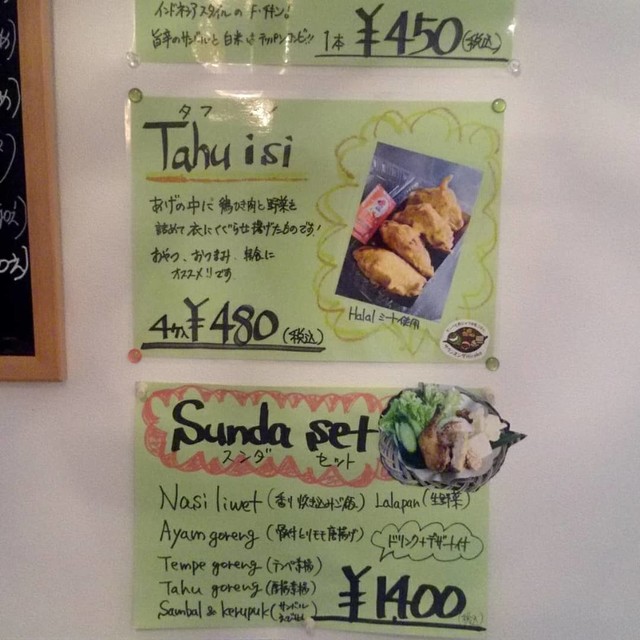 旨辛のサンバルと白米は
1本 ¥450(税込)
Tahu isi
あげの中に鶏ひき肉と野菜を
詰めて衣にくぐらせ揚げたものです!
おやつ、おつまみ、軽食に
オススメです
4ケ入 ¥480(税込)
Halalミート使用
Sunda set
スンダ セット
Nasi liwet (香り炊き込みご飯) Lalapan (生野菜)
Ayam goreng (骨付とりモモ唐揚げ)
ドリンク+デザート付
Tempe goreng (テンペ素揚)
Tahu goreng (厚揚素揚)
Sambal & kerupuk (サンバル
¥1400